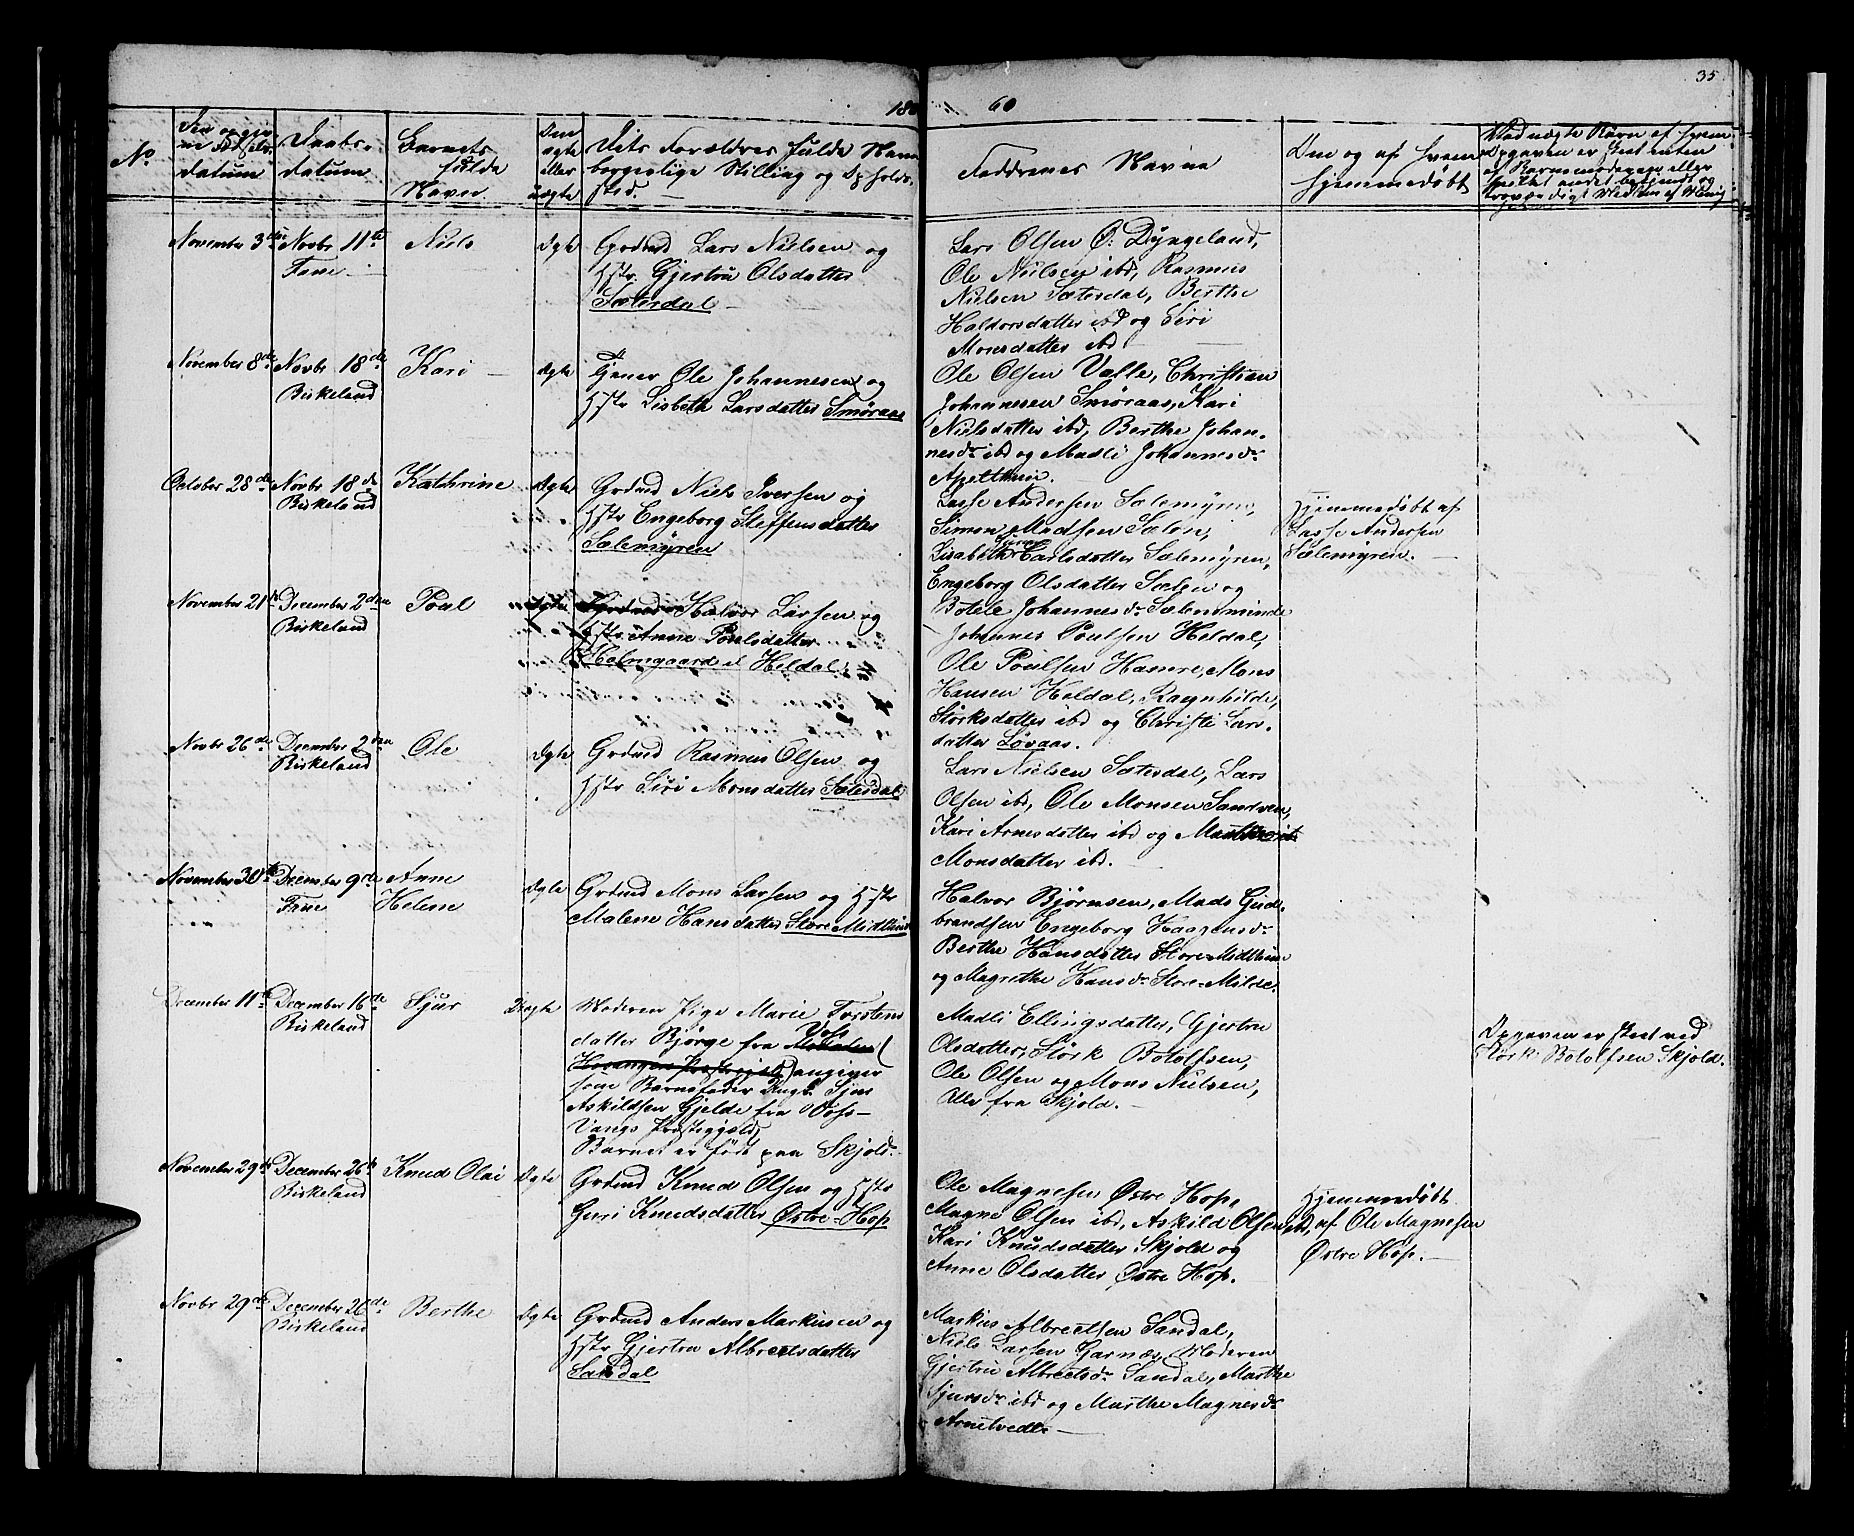 35
1860
No
Den opgivne Fødsels-
datum
Daabs-
datum
Barnets
fulde
Navn
Om
ægte
eller
uægte
Dits Forældres fulde Navn
borgerlige Stilling og Opholds-
sted.
Faddernes Navne
Om og af hvem
hjemmedøbt
November 3die
Novbr 11te
Fane
Niels
Ægte
Grdmd Lars Nielsen og
Hstr. Gjertrü Olsdatter
Sætersdal
Lars Olsen Ø. Dyngeland,
Ole Nielsen ibd, Rasmus
Nielsen Sætersdal, Berthe
Haldorsdatter ibd og Siri
Monsdatter ibd
November 8de
Novbr 18de
Birkeland
Kari
Ægte
Tjener Ole Johannesen og
Hstr Lisbeth Larsdatter Smøraas
Ole Olsen Valle, Christian
Johannesen Smøraas, Kari
Nielsdatter ibd, Berthe Johan-
nesdr ibd og Madli Johannesdr
Apelthun.
October 28de
Novbr 18de
Birkeland
Kathrine
Ægte
Grdmd Niels Iversen og
Hstr Engeborg Steffensdatter
Sælemyren
Lasse Andersen Sælemyren,
Simon Madsen Sælen,
Lisabeth Carlsdatter Sælemyren,
Engeborg Olsdatter Sælen og
Botele Johannesdr Sælensminde
Hjemmedøbt af
Lasse Andersen
Sælemyren.
November 21de
December 2den
Birkeland
Poul
Ægte
Halvor Larsen og
Hstr Anne Poulsdatter
Holmegaard el Heldal
Johannes Poulsen Heldal,
Ole Poulsen Hamre, Mons
Hansen Heldal, Ragnhilde
Størksdatter ibd og Christi Lars-
datter Løvaas.
Novbr 26de
December 2den
Birkeland
Ole
Ægte
Grdmd Rasmus Olsen og
Hstr Siri Monsdatter Sætersdal
Lars Nielsen Sætersdal, Lars
Olsen ibd, Ole Monsen Sandven,
Kari Arnesdatter ibd og
Monsdatter ibd.
November 30te
December 9de
Fane
Anne
Helene
Ægte
Grdmd Mons Larsen og Hstr
Malene Hansdatter Store Midthun
Halvor Bjørnsen, Mads Gud-
brandsen Engeborg Haagensdr
Berthe Hansdatter Store Midthun
og Magrethe Hansdr Store-Milde.
December 11te
December 16de
Birkeland
Sjur
Uægte
Moderen Pige Marie Torstens
datter Bjørge fra Vos
Hosanger Præstegjeld angiver
som Barnefader Ungk. Sjur
Askildsen Gjelde fra Voss-
Vangs Præstegjeld,
Barnet er født paa Skjold.
Madli Ellingsdatter, Gjertrü
Olsdatter, Størk Botolfsen,
Ole Olsen og Mons Nielsen,
Alle fra Skjold.
Opgaven er skeet ved
Størk Botolfsen Skjold.
November 29de
December 26de
Birkeland
Knud Olai
Ægte
Grdmd Knud Olsen og Hstr
Guri Knudsdatter Østre-Hop
Ole Magnesen Østre Hop,
Magne Olsen ibd, Askild Olsen ibd,
Kari Knudsdatter Skjold og
Anne Olsdatter Østre Hop.
Hjemmedøbt
af Ole Magnesen
Østre Hop.
Novbr 29de
December 26de
Birkeland
Berthe
Ægte
Grdmd Anders Markusen og
Hstr Gjertru Albrectsdatter
Sandal
Markus Albrectsen Sandal,
Niels Larsen Garnæs, Moderen
Gjertru Albrectsdr Sandal, Marthe
Sjursdr ibd og Marthe Magnesdr
Arnetvedt